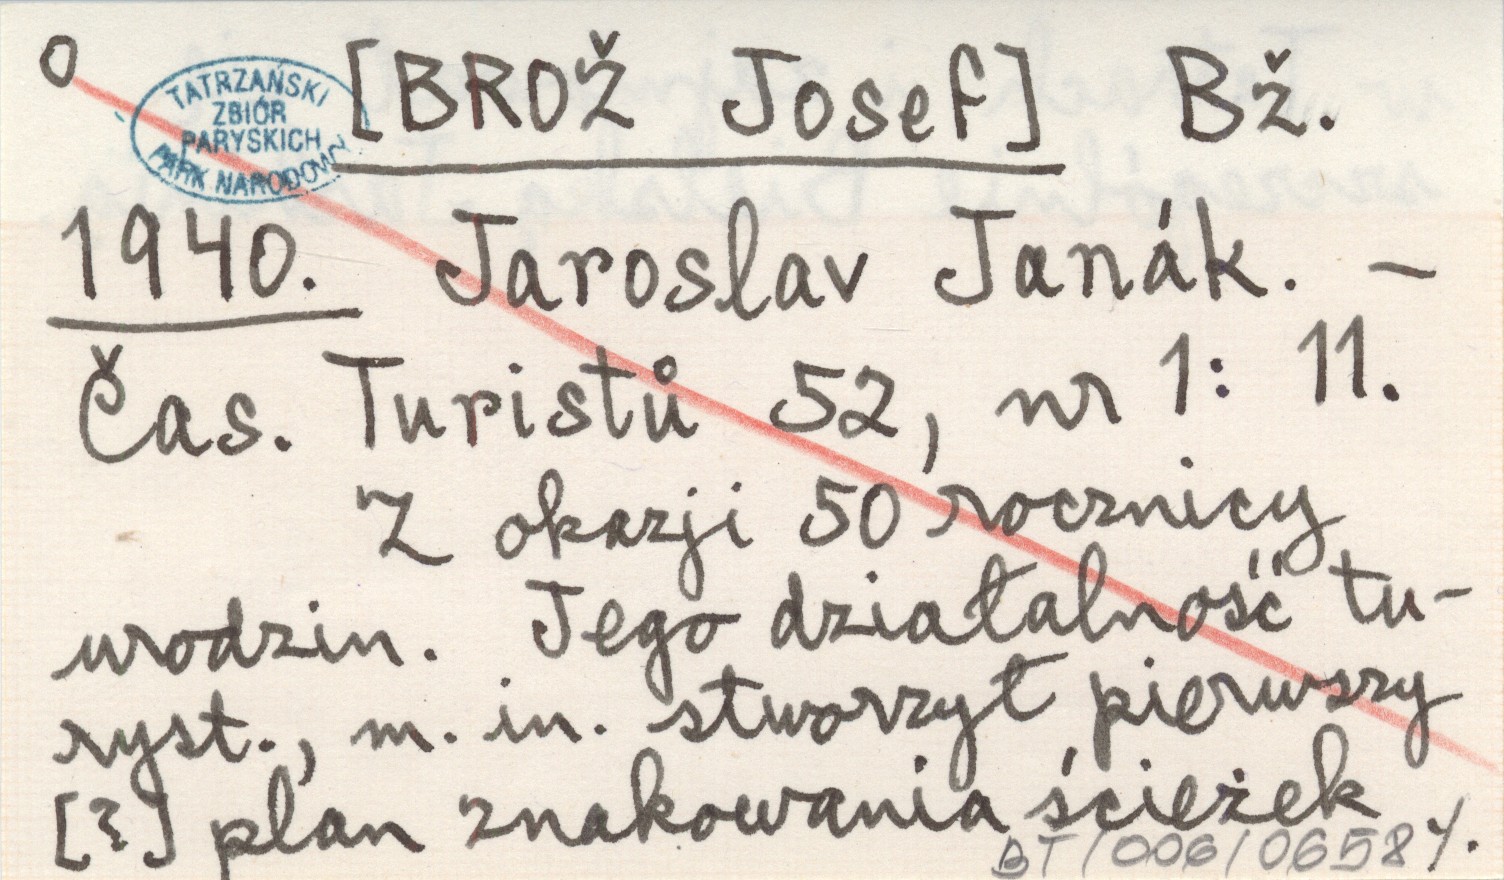 O
TATRZAŃSKI
ZBIÓR
PARYSKICH
PARK NARODOWY
[BROŽ Josef] Bž.
1940. Jaroslav Janák. –
Čas. Turistů 52, nr 1: 11.
Z okazji 50 rocznicy
urodzin. Jego działalność tu-
ryst., m. in. stworzył pierwszy
[?] plan znakowania ścieżek ./.
BT/006/0658